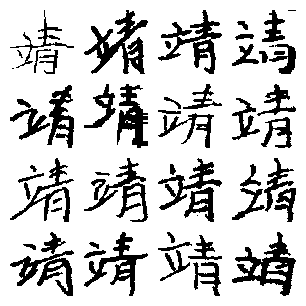 靖靖靖靖
靖靖靖靖
靖靖靖靖
靖靖靖靖